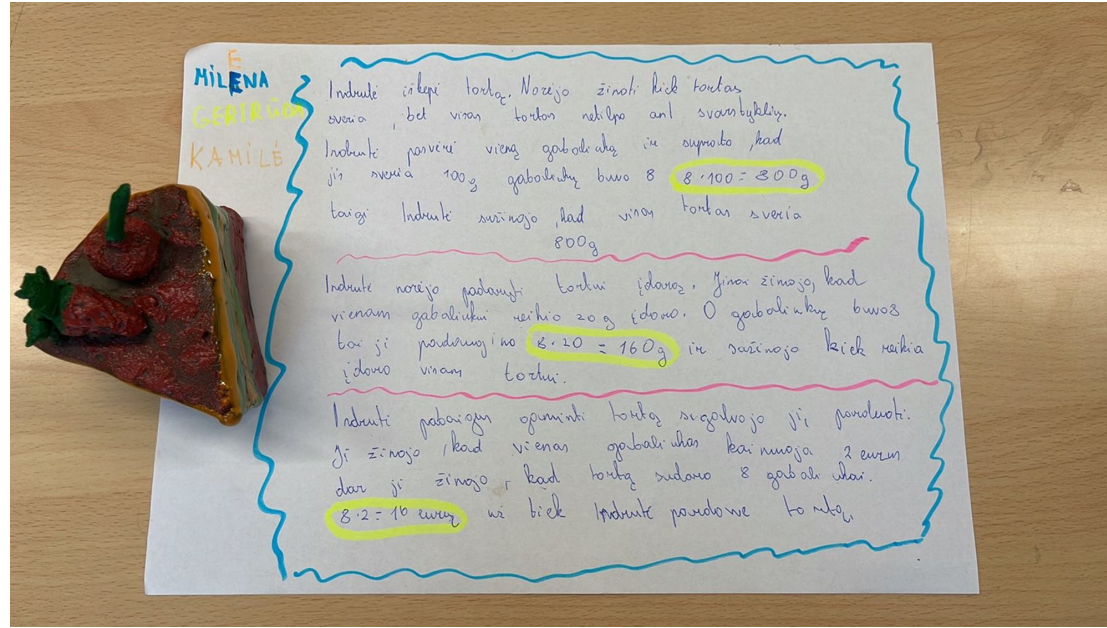 E
MILENA
GERTRŪDA
KAMILĖ
Indrutė iškepė tortą. Norėjo žinoti kiek tortas
sveria, bet visas tortas netilpo ant svarstyklių.
Indrutė pasvėrė vieną gabaliuką ir suprato, kad
jis sveria 100g gabaliukų buvo 8 8·100=800g
taigi Indrutė sužinojo, kad visas tortas sveria
800g
Indrutė norėjo padaryti tortui įdarą. Jinai žinojo, kad
vienam gabaliukui reikia 20g įdaro. O gabaliukų buvo 8
tai ji padaugino 8·20=160g ir sužinojo kiek reikia
įdaro visam tortui.
Indrutė pabaigus gaminti tortą sugalvojo jį parduoti.
Ji žinojo, kad vienas gabaliukas kainuoja 2 eurus
dar ji žinojo, kad tortą sudaro 8 gabaliukai.
8·2=16 eurų už tiek Indrutė pardavė tortą.